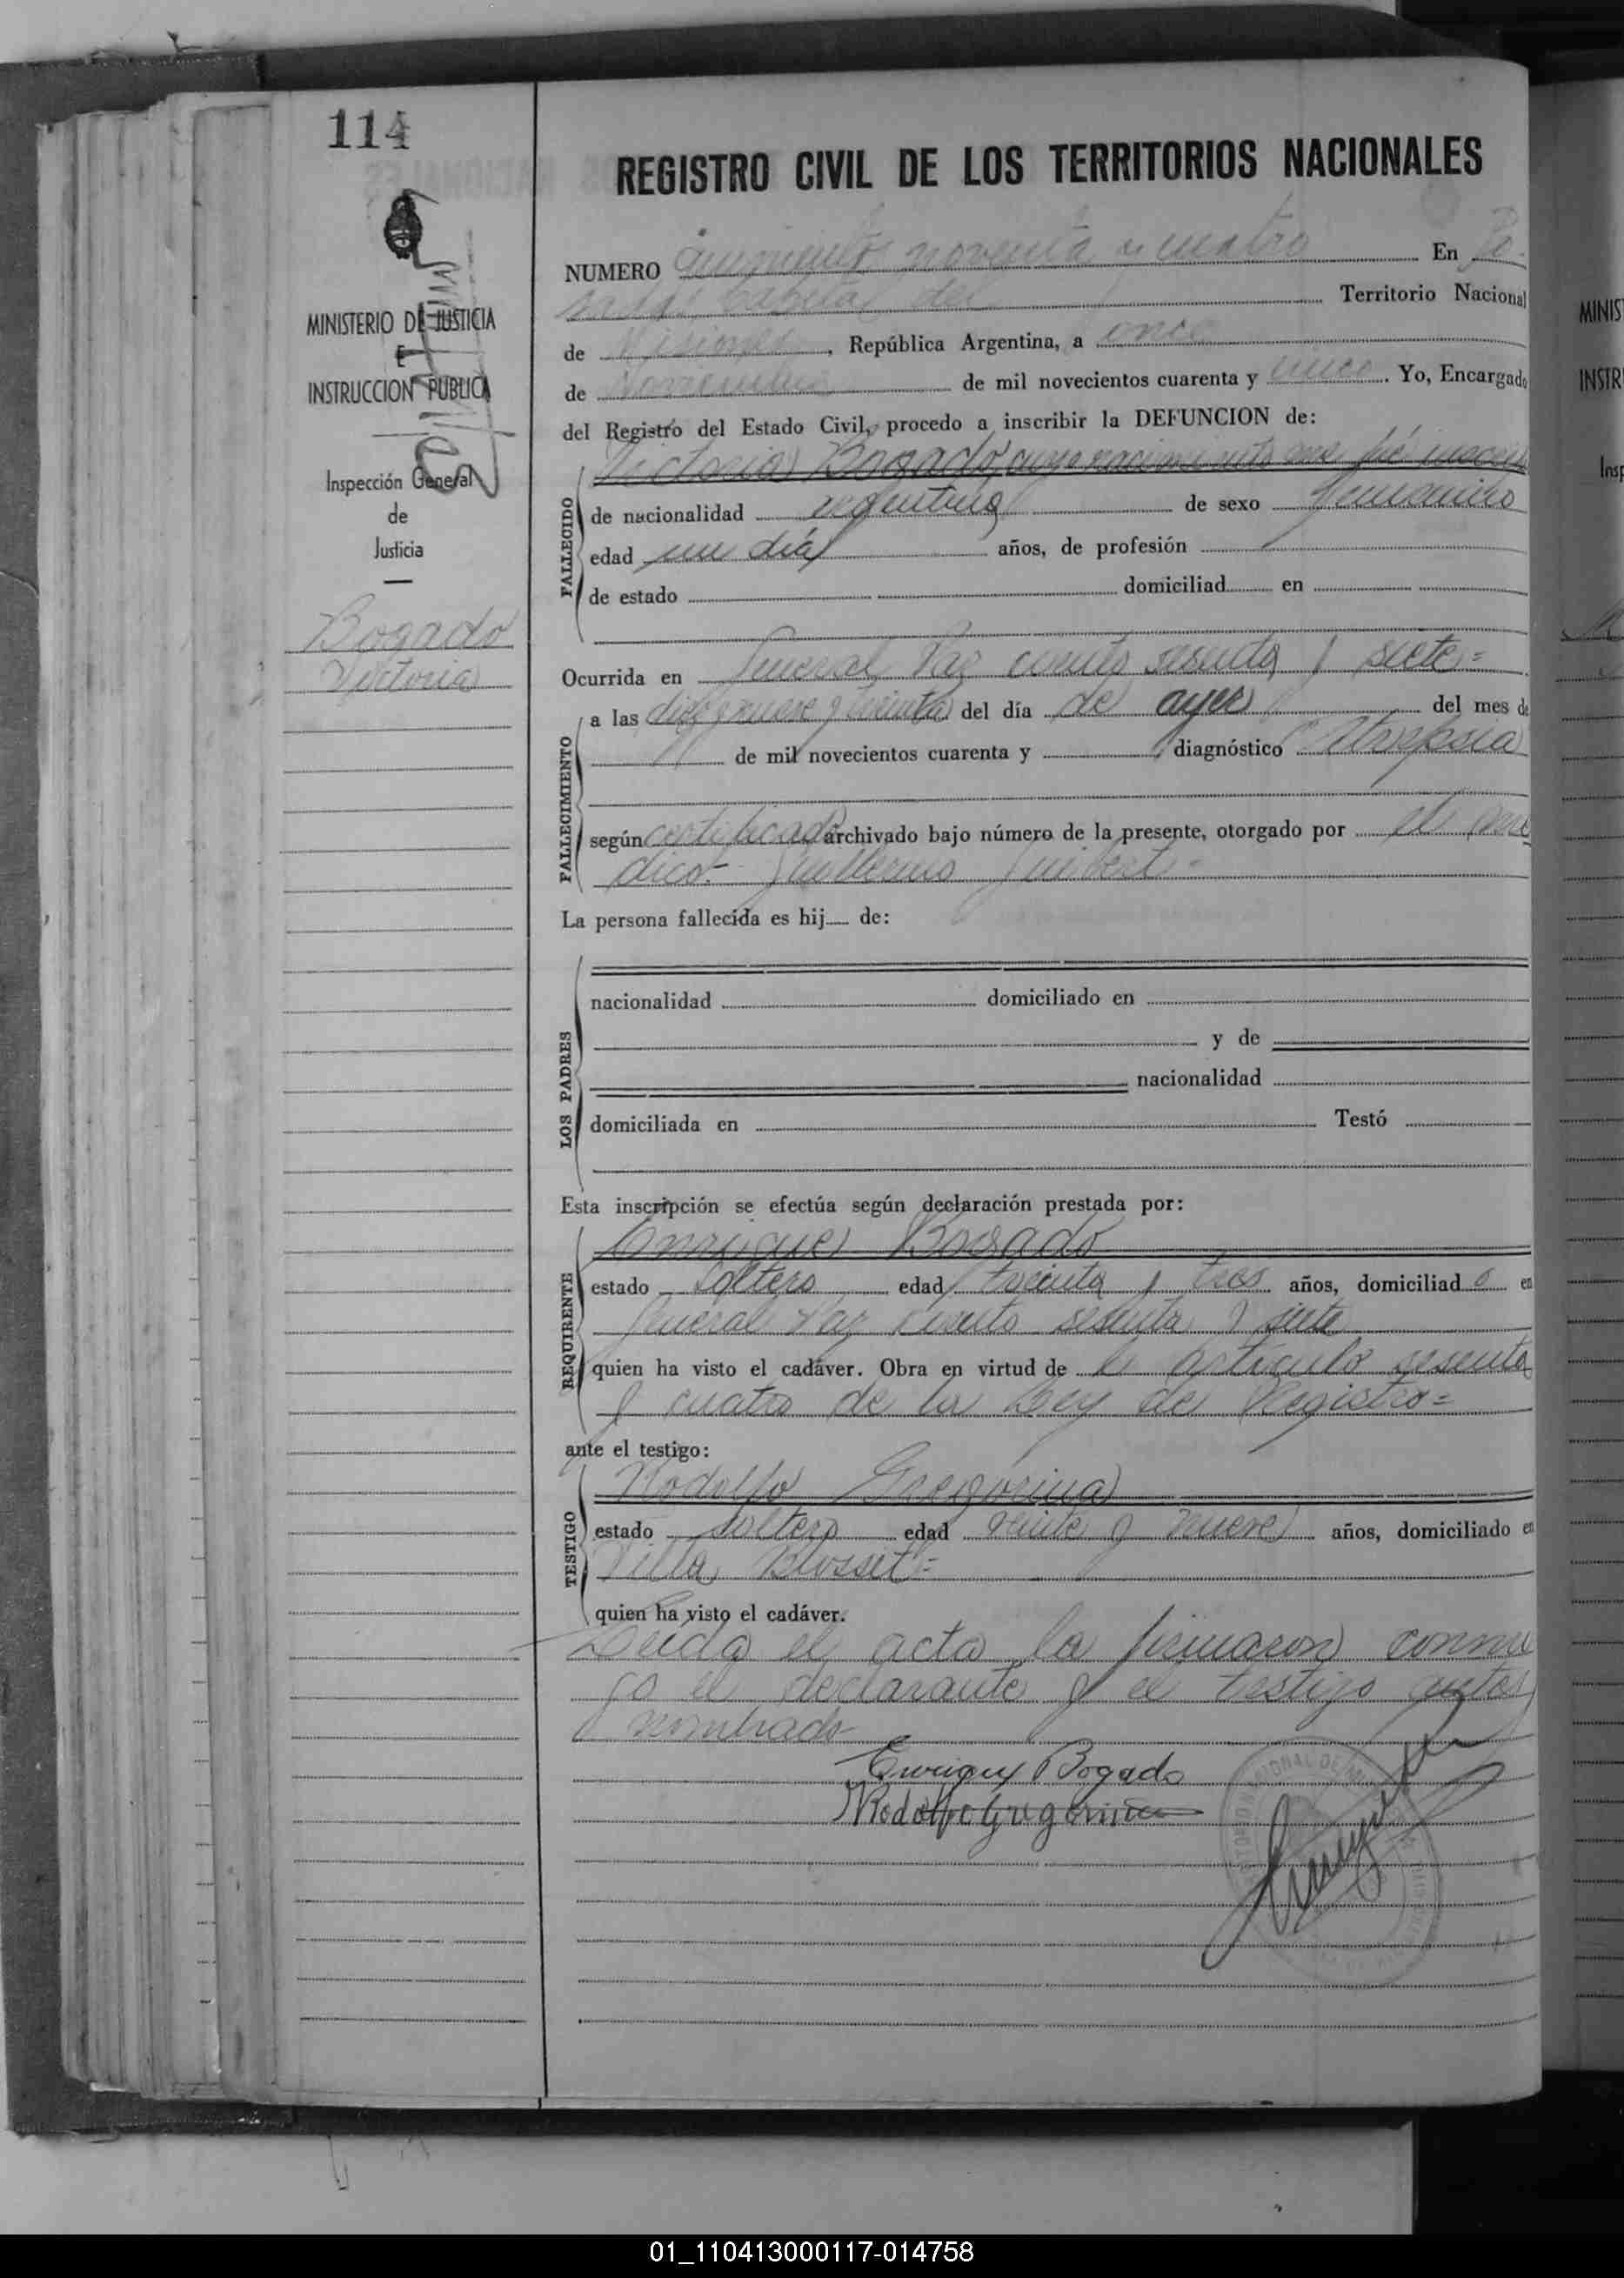 114
REGISTRO CIVIL DE LOS TERRITORIOS NACIONALES
MINISTERIO DE JUSTICIA
E
INSTRUCCION PUBLICA
Inspección General
de
Justicia
Bogado
Victoria
NUMERO quinientos noventa y cuatro En Po-
sadas capital del Territorio Nacional
de Misiones, República Argentina, a once
de Noviembre de mil novecientos cuarenta y cinco. Yo, Encargado
del Registro del Estado Civil, procedo a inscribir la DEFUNCION de:
FALLECIDO
Victoria Bogado, cuyo nacimiento
de nacionalidad argentina de sexo femenino
edad un día años, de profesión
de estado domiciliad en
Ocurrida en General Paz ciento sesenta y siete=
FALLECIMIENTO
a las diez y nueve y treinta del día de ayer del mes de
de mil novecientos cuarenta y diagnóstico
según certificado archivado bajo número de la presente, otorgado por el mé
dico Guillermo
La persona fallecida es hij de:
LOS PADRES
nacionalidad domiciliado en
y de
nacionalidad
domiciliada en Testó
Esta inscripción se efectúa según declaración prestada por:
REQUIRENTE
Enrique Bogado
estado soltero edad treinta y tres años, domiciliado en
General Paz ciento sesenta y siete
quien ha visto el cadáver. Obra en virtud de artículo sesenta
y cuatro de la Ley de Registro=
ante el testigo:
TESTIGO
Rodolfo Gregorina
estado soltero edad veinte y nueve años, domiciliado en
Villa Blosset=
quien ha visto el cadáver.
Leida el acta la firmaron conmi
go el declarante y el testigo antes
nombrado
Enrique Bogado
Rodolfo Gregorina
01_110413000117-014758